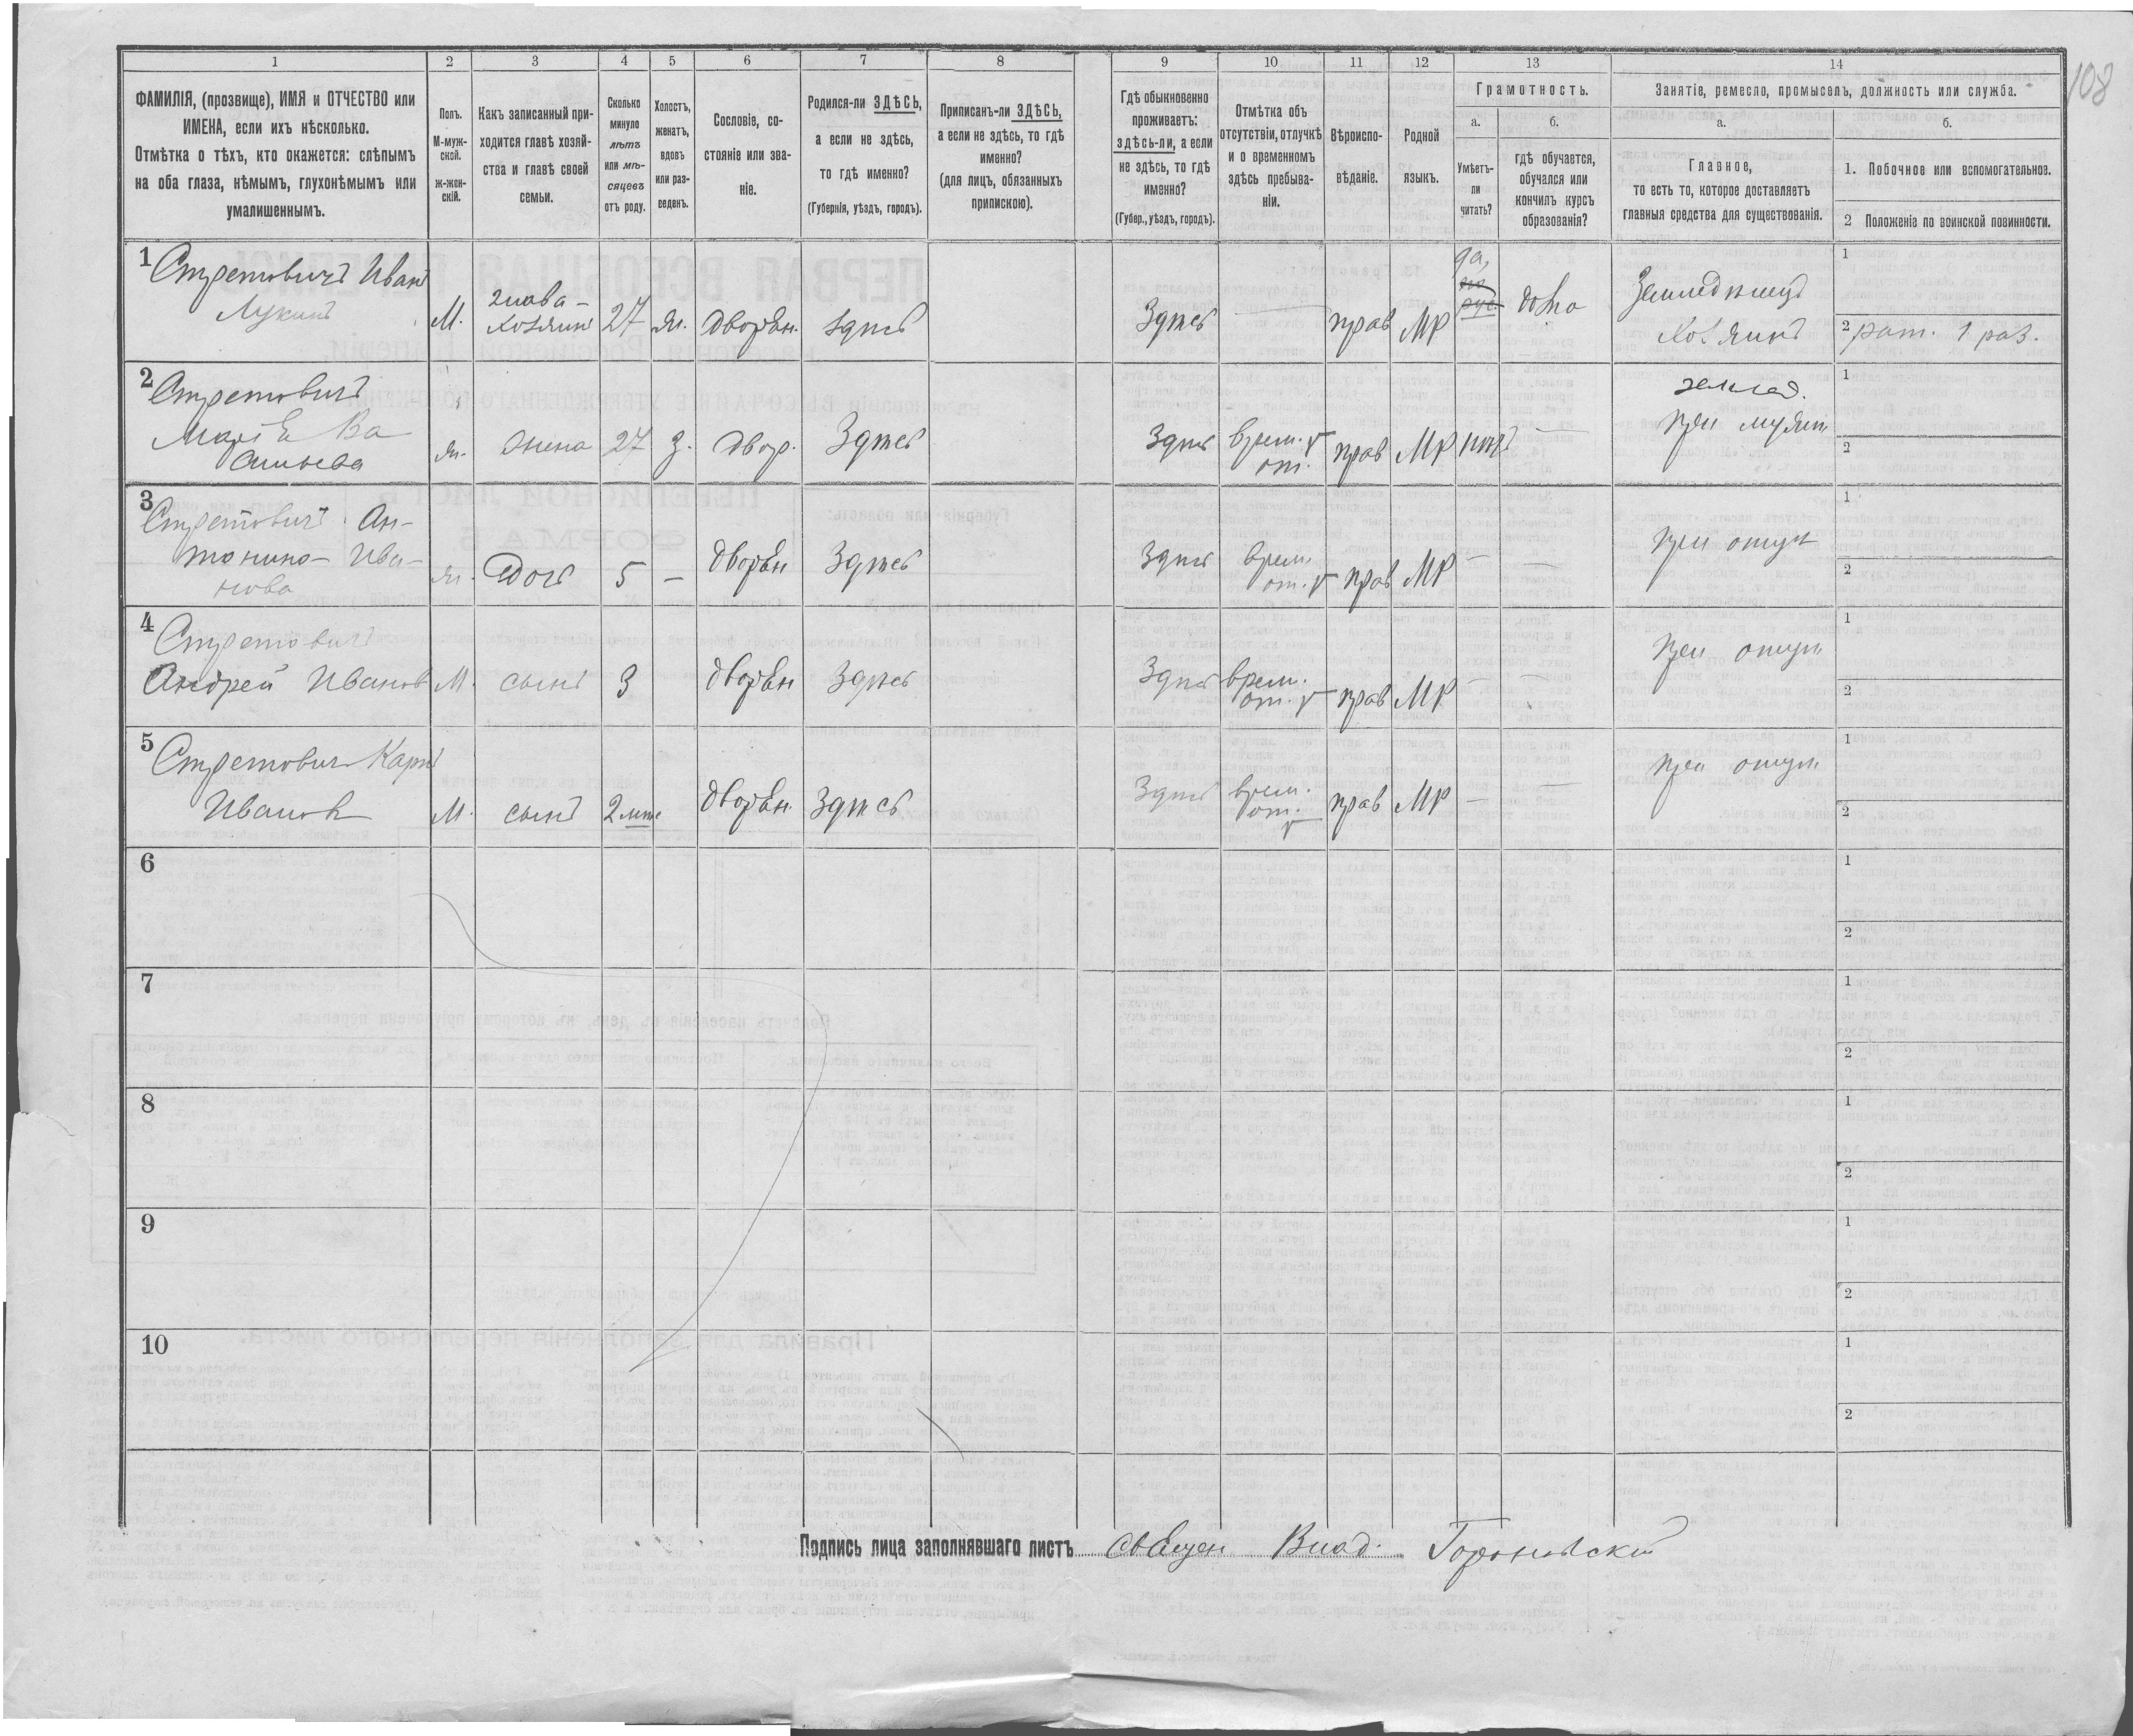 108
1 2 3 4 5 6 7 8 9 10 11 12 13 14
ФАМИЛІЯ, (прозвище), ИМЯ и ОТЧЕСТВО или
ИМЕНА, если ихъ нѣсколько.
Отмѣтка о тѣхъ, кто окажется: слѣпымъ
на оба глаза, нѣмымъ, глухонѣмымъ или
умалишеннымъ.
Полъ.
М-муж-
ской.
ж-жен-
скій.
Какъ записанный при-
ходится главѣ хозяй-
ства и главѣ своей
семьи.
Сколько
минуло
лѣтъ
или мѣ-
сяцевъ
отъ роду.
Холостъ,
женатъ,
вдовъ
или раз-
веденъ.
Сословіе, со-
стояніе или зва-
ніе.
Родился-ли ЗДѢСЬ,
а если не здѣсь,
то гдѣ именно?
(Губернія, уѣздъ, городъ).
Приписанъ-ли ЗДѢСЬ,
а если не здѣсь, то гдѣ
именно?
(для лицъ, обязанныхъ
припискою).
Гдѣ обыкновенно
проживаетъ:
здѣсь-ли, а если
не здѣсь, то гдѣ
именно?
(Губер., уѣздъ, городъ).
Отмѣтка объ
отсутствіи, отлучкѣ
и о временномъ
здѣсь пребыва-
ніи.
Вѣроиспо-
вѣданіе.
Родной
языкъ.
Грамотность.
а.
Умѣетъ-
ли
читать?
б.
гдѣ обучается,
обучался или
кончилъ курсъ
образованія?
Занятіе, ремесло, промыселъ, должность или служба.
а.
Главное,
то есть то, которое доставляетъ
главныя средства для существованія.
б.
1. Побочное или вспомогательное.
2 Положеніе по воинской повинности.
1 Стретовичъ Иванъ
Лукинъ
М. глава-
хозяинъ 27 ж. дворян. здѣсь
Здѣсь прав МР да, дома
Земледѣлецъ
хозяинъ
1
2 рат. 1 раз.
2 Стретовичъ
Марія Ва
сильева
ж. жена 27 з. двор. Здѣсь
Здѣсь врем. от. прав МР нѣтъ —
землед.
при мужѣ
1
2
3 Стретовичъ Ан-
тонина Ива-
нова
ж. дочь 5 — дворян Здѣсь
Здѣсь врем. от. прав МР — —
при отцѣ
1
2
4 Стретовичъ
Андрей Иванов
М. сынъ 3 дворян Здѣсь
Здѣсь врем. от. прав МР — —
при отцѣ
1
2
5 Стретович Карпъ
Иванов
М. сынъ дворян. Здѣсь
Здѣсь врем. от. прав МР — —
при отцѣ
1
2
6
1
2
7
1
2
8
1
2
9
1
2
10
1
2
Подпись лица заполнявшаго листъ Священ Влад.